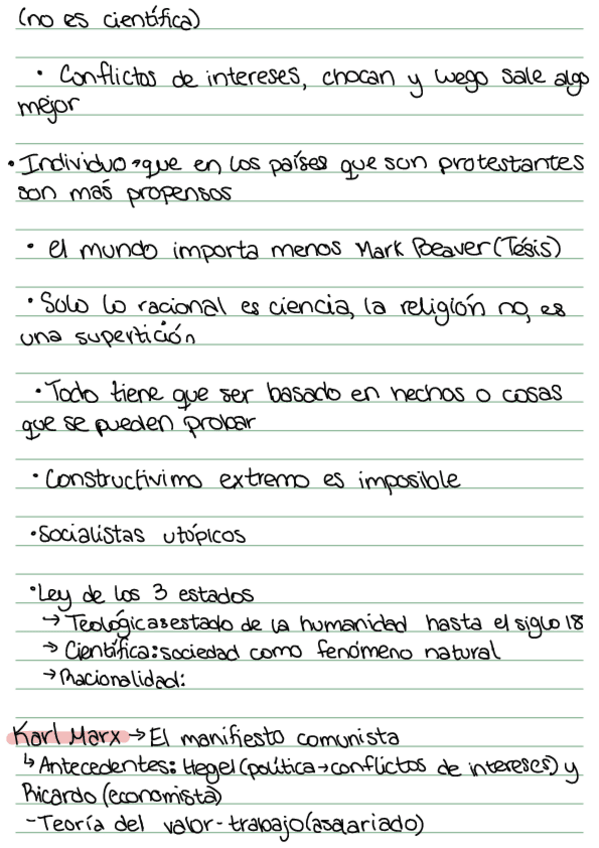 (no es científica)
• Conflictos de intereses, chocan y luego sale algo
mejor
• Individuo→que en los países que son protestantes
son más propensos
• el mundo importa menos Mark Poeaver (Tésis)
• Solo lo racional es ciencia, la religión no, es
una supertición
• Todo tiene que ser basado en hechos o cosas
que se pueden probar
• Constructivimo extremo es imposible
• Socialistas utópicos
• Ley de los 3 estados
→ Teológica: estado de la humanidad hasta el siglo 18
→ Científica: sociedad como fenómeno natural
→ Racionalidad:
Karl Marx → El manifiesto comunista
↳ Antecedentes: Hegel (política→conflictos de intereses) y
Ricardo (economista)
- Teoría del valor - trabajo (asalariado)